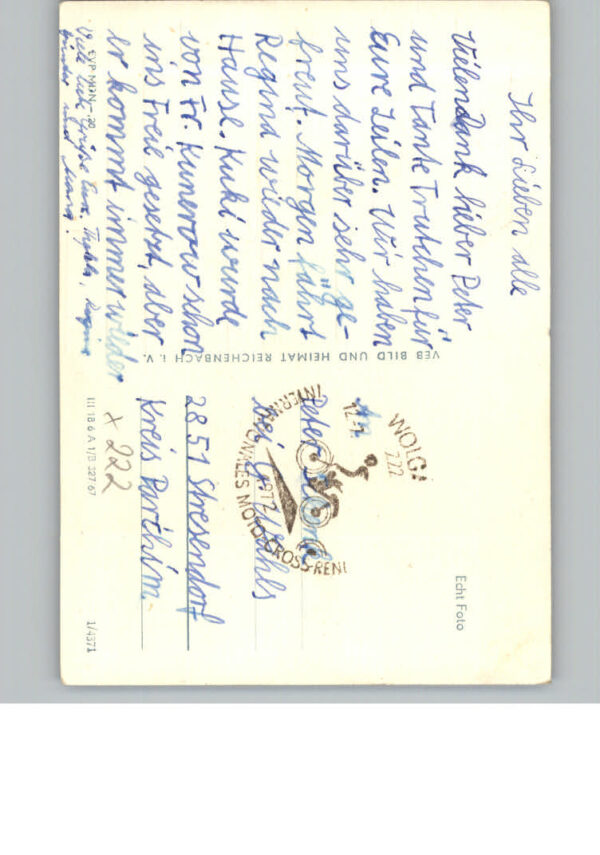 Ihr Lieben alle
Vielen Dank lieber Peter
und Tante Trutchen für
Eure Zeilen. Wir haben
uns darüber sehr ge-
freut. Morgen fährt
Regina wieder nach
Hause. Kuki wurde
von Fr. Kunerow schon
ins Freie gesetzt, aber
er kommt immer wieder
Viele liebe Grüße
und
EVP MDN -,20
VEB BILD UND HEIMAT REICHENBACH I. V.
III 18 6 A 1/B 327 67
1/4371
Echt Foto
x 222
WOLG
722
12.
1972
INTERNATIONALES MOTO-CROSS-RENN
An
Peter
bei
2851 Stresendorf
Kreis Parchim